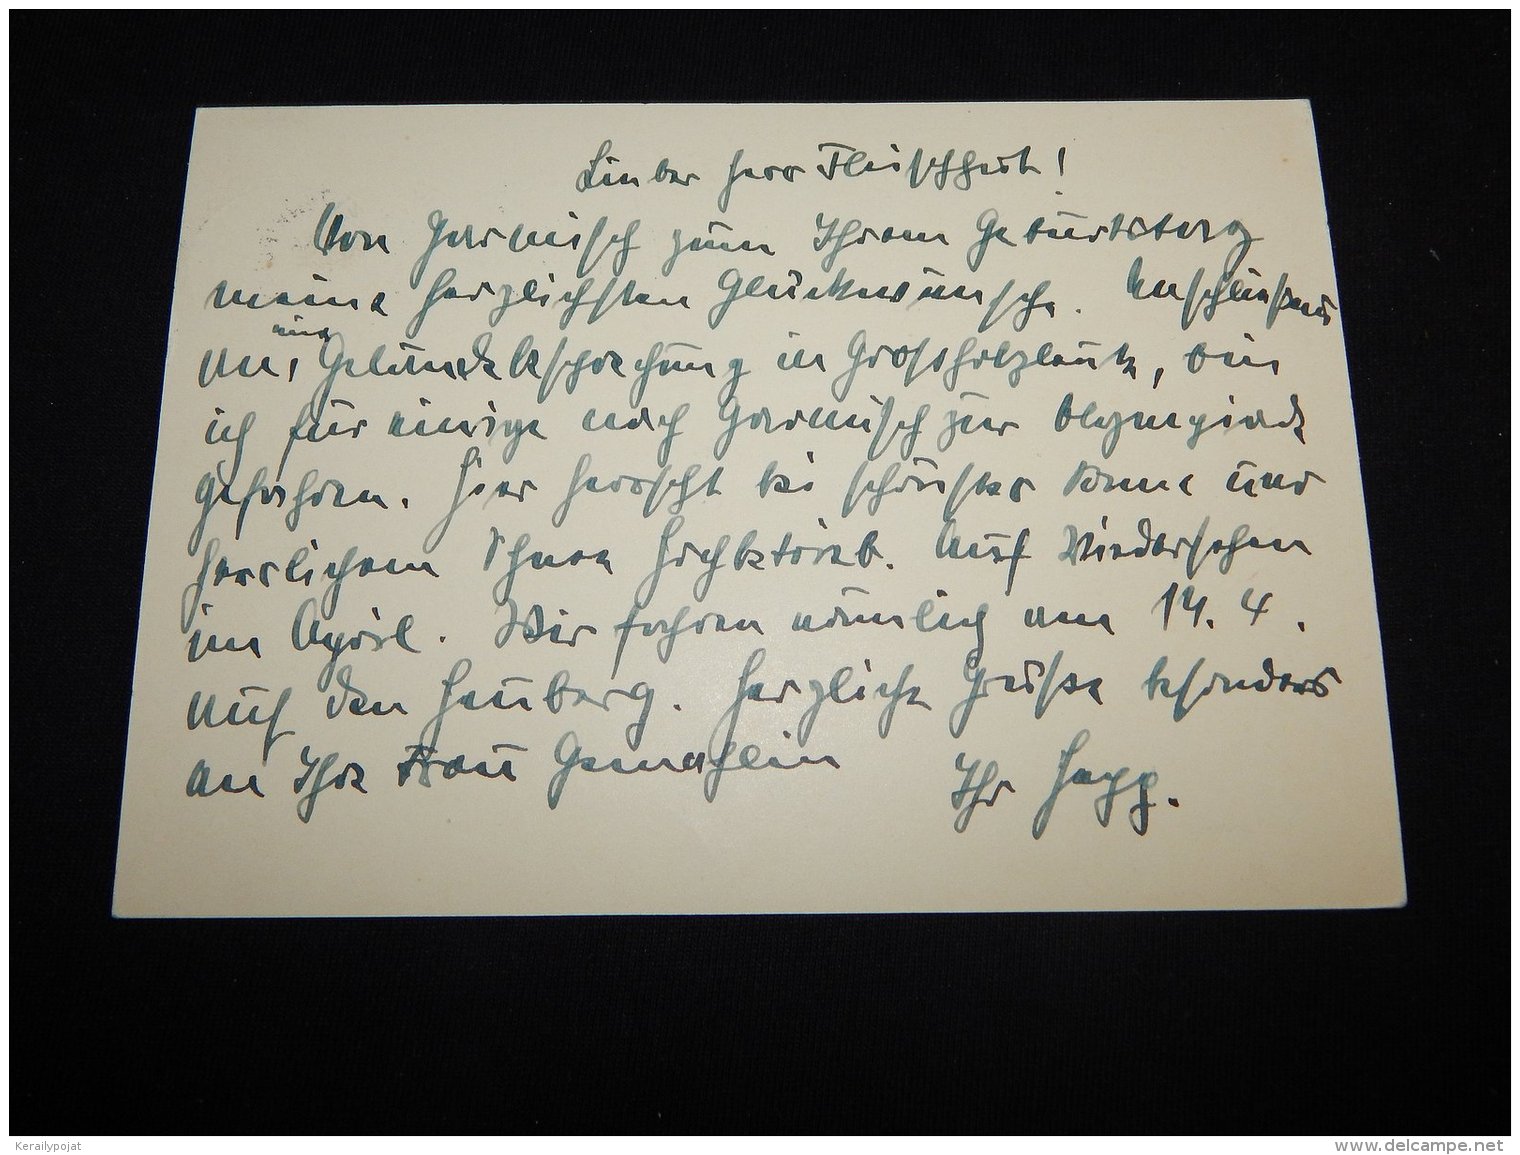 Lieber Herr Fleischhut!
Von Garmisch zum Ihrem Geburtstag
meine herzlichsten Glückwünsche. Anschließend
an eine Geländebesprechung in Großholzleute, bin
ich für einige nach Garmisch zur Olympiade
gefahren. Hier herrscht bei schönster Sonne und
herrlichem Schnee Hochbetrieb. Auf Wiedersehen
im April. Wir fahren nämlich am 14. 4.
auf den Heuberg. Herzliche Grüße besonders
an Ihre Frau Gemahlin
Ihr Happ.
Kerailypojat
www.delcampe.net